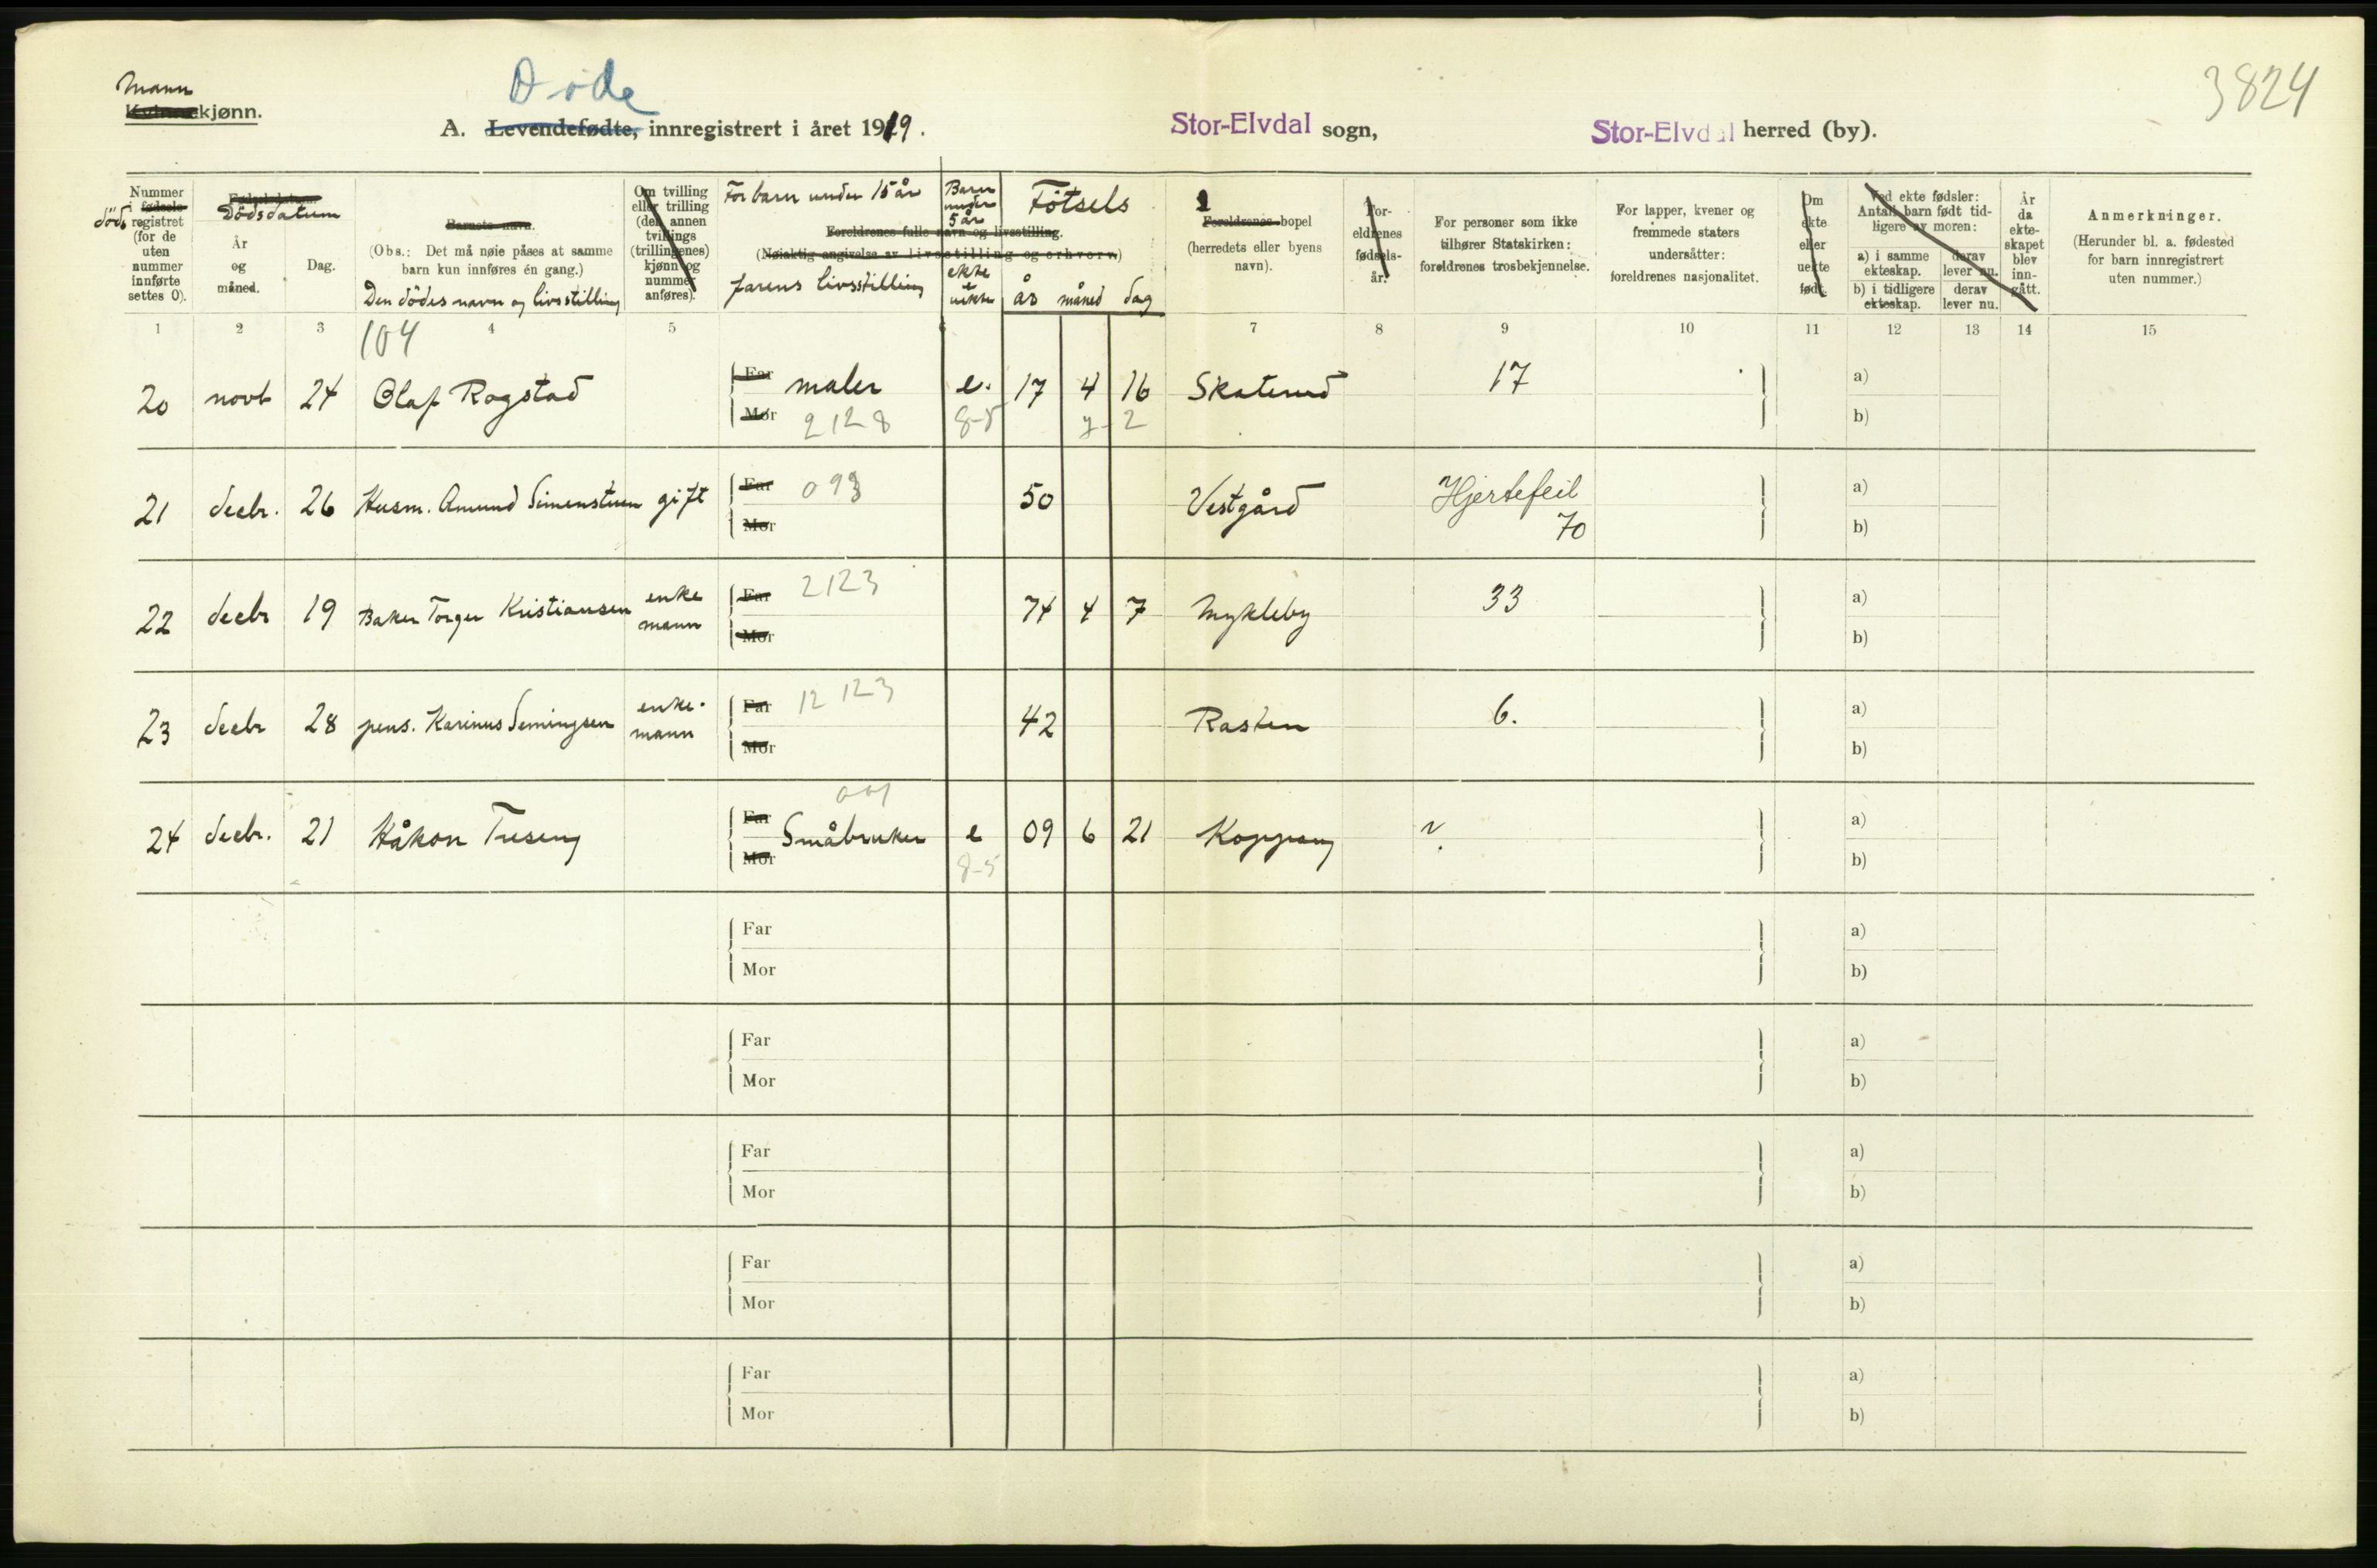 3824
Mann
Kvinnekjønn.
Døde
A. Levendefødte, innregistrert i året 1919.
Stor-Elvdal sogn,
Stor-Elvdal herred (by).
Nummer
i fødsels-
döds registret
(for de
uten
nummer
innførte
settes 0).
Fødselsdatum.
Dödsdatum
År
og
måned.
Dag.
Barnets navn.
(Obs.: Det må nøie påses at samme
barn kun innføres én gang.)
Den dödes navn og livsstilling
Om tvilling
eller trilling
(den annen
tvillings
(trillingenes)
kjønn og
nummer
anføres).
For barn under 15 år
Foreldrenes fulle navn og livsstilling.
(Nøiaktig angivelse av livsstilling og erhverv)
farens livsstilling
Barn
under
5 år
ekte
e
uekte
Fötsels
år måned dag
Foreldrenes bopel
(herredets eller byens
navn).
For-
eldrenes
fødsels-
år.
For personer som ikke
tilhører Statskirken:
foreldrenes trosbekjennelse.
For lapper, kvener og
fremmede staters
undersåtter:
foreldrenes nasjonalitet.
Om
ekte
eller
uekte
født.
Ved ekte fødsler:
Antall barn født tid-
ligere av moren:
a) i samme
ekteskap.
derav
lever nu.
b) i tidligere
ekteskap.
derav
lever nu.
År
da
ekte-
skapet
blev
inn-
gått.
Anmerkninger.
(Herunder bl. a. fødested
for barn innregistrert
uten nummer.)
1 2 3 4 5 6 7 8 9 10 11 12 13 14 15
104
20 novb 24 Olaf Rogstad Far maler e. 17 4 16 Skaterud 17 a)
Mor 2128 8-5 7-2 b)
21 decbr. 26 Husm. Amund Simenstuen gift Far 093 50 Vestgård Hjertefeil a)
Mor 70 b)
22 decbr 19 Baker Torger Kristiansen enke Far 2123 74 4 7 Mykleby 33 a)
mann Mor b)
23 decbr 28 pens. Karinus Semingsen enke- Far 12123 42 Rasten 6. a)
mann Mor b)
001
24 decbr. 21 Håkon Treseng Far Småbruker e 09 6 21 Koppang a)
Mor 8-5 b)
Far a)
Mor b)
Far a)
Mor b)
Far a)
Mor b)
Far a)
Mor b)
Far a)
Mor b)